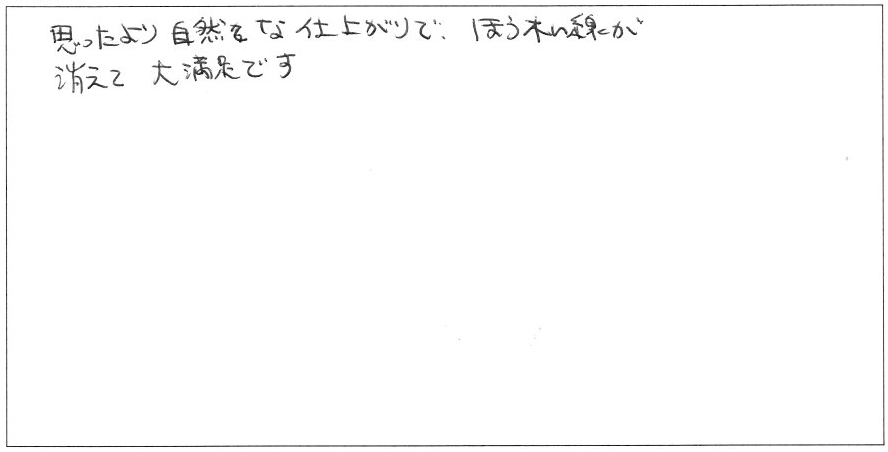 思ったより自然な仕上がりで、ほうれい線が
消えて 大満足です